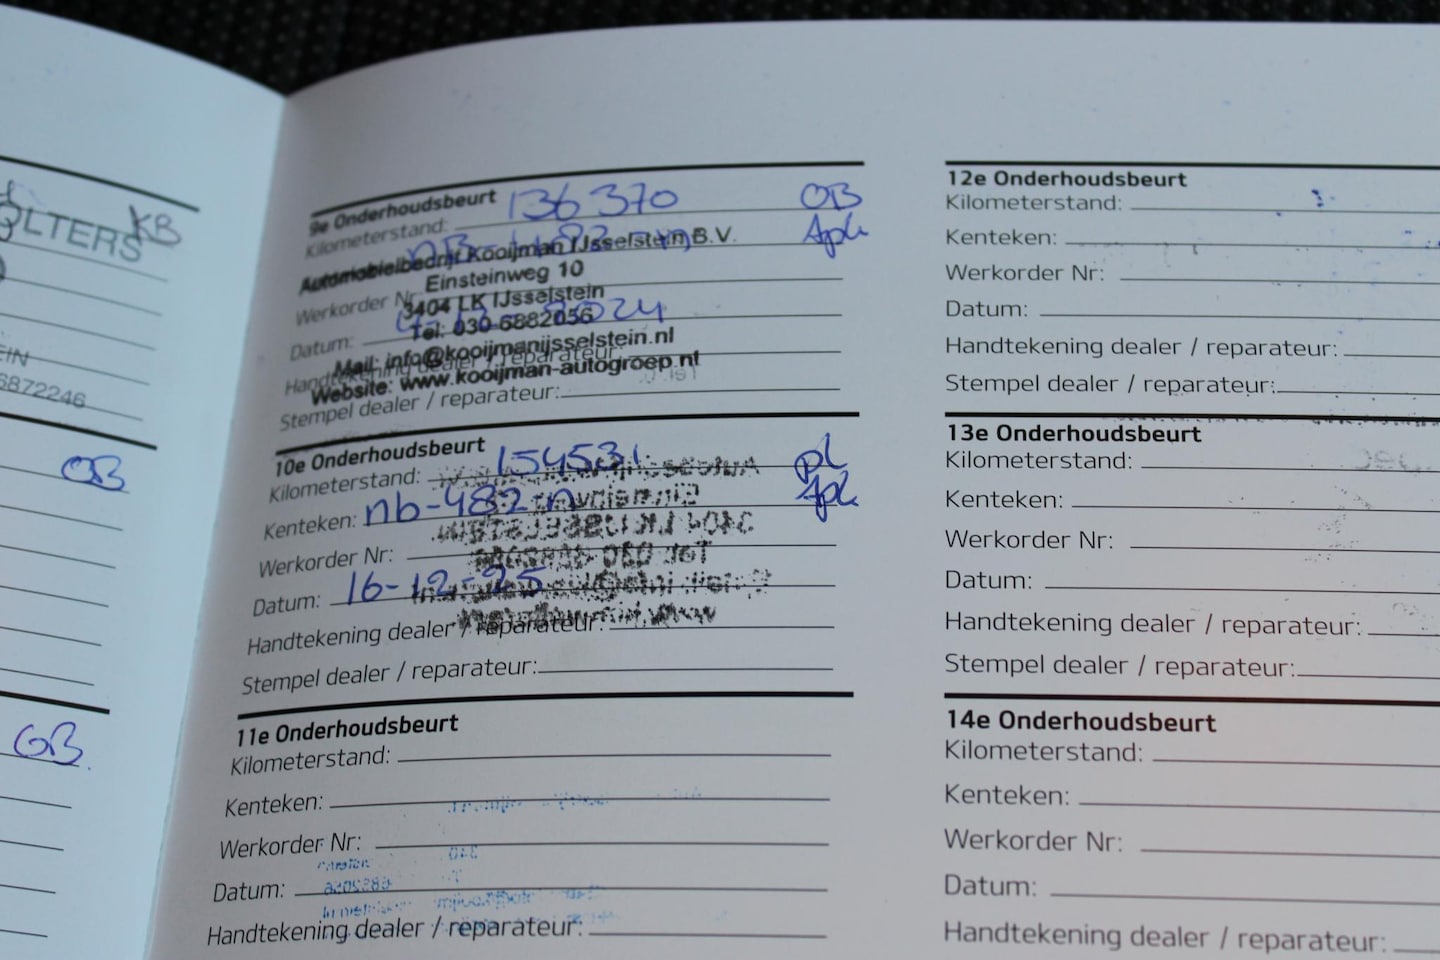 OLTERS
KB
EIN
6872246
OB
GB.
9e Onderhoudsbeurt
Kilometerstand: 136370 OB
Apk
Automobielbedrijf Kooijman IJsselstein B.V.
Einsteinweg 10
Werkorder Nr:
3404 LK IJsselstein
Tel: 030-6882056
Datum: 2024
Mail: info@kooijmanijsselstein.nl
Handtekening dealer / reparateur:
Website: www.kooijman-autogroep.nl
Stempel dealer / reparateur:
10e Onderhoudsbeurt
Kilometerstand: 154531 pl
Kenteken: nb-482-n Apk
Werkorder Nr:
Datum: 16-12-25
Handtekening dealer / reparateur:
Stempel dealer / reparateur:
11e Onderhoudsbeurt
Kilometerstand:
Kenteken:
Werkorder Nr:
Datum:
Handtekening dealer / reparateur:
12e Onderhoudsbeurt
Kilometerstand:
Kenteken:
Werkorder Nr:
Datum:
Handtekening dealer / reparateur:
Stempel dealer / reparateur:
13e Onderhoudsbeurt
Kilometerstand:
Kenteken:
Werkorder Nr:
Datum:
Handtekening dealer / reparateur:
Stempel dealer / reparateur:
14e Onderhoudsbeurt
Kilometerstand:
Kenteken:
Werkorder Nr:
Datum:
Handtekening dealer / reparateur: